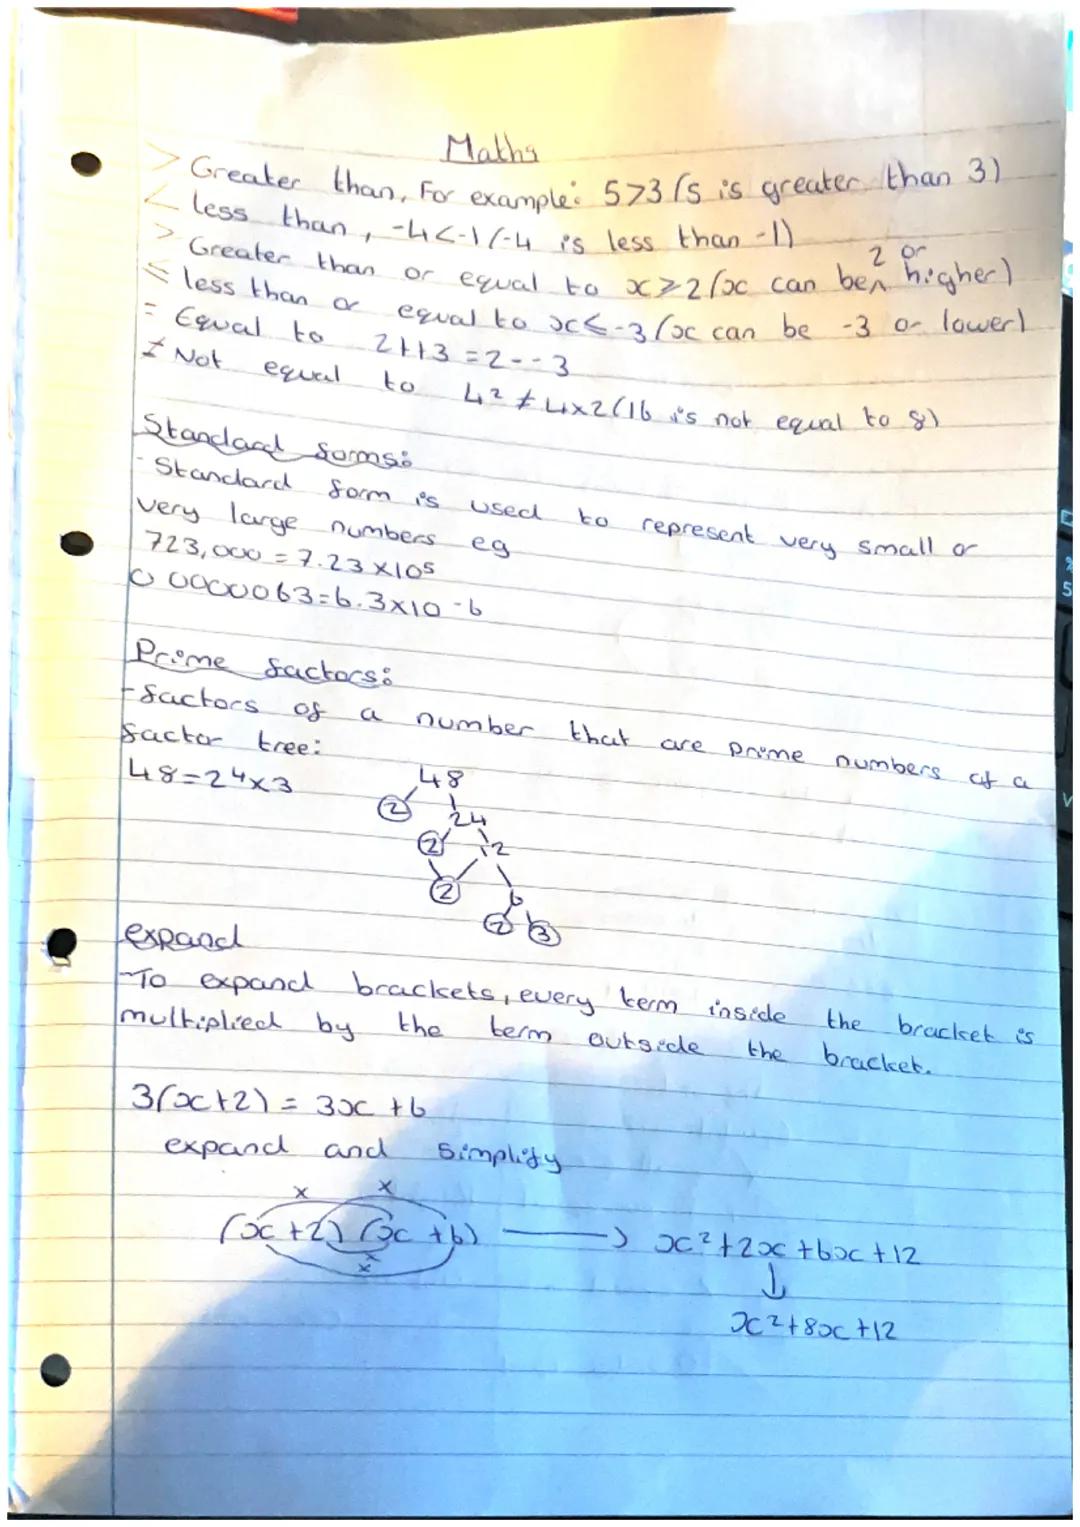 Maths
> Greater than, For example: 5>3 (5 is greater than 3)
< less than, -4<-1 (-4 is less than -1)
2 or
> Greater than or equal to x⩾2 (x can be^ higher)
⩽ less than or equal to x⩽-3 (x can be -3 or lower)
= Equal to 2++3 = 2--3
≠ Not equal to 4² ≠ 4x2 (16 is not equal to 8)
Standard forms:
- Standard form is used to represent very small or
very large numbers eg
723,000 = 7.23 x10⁵
0 0000063=6.3x10 -6
Prime factors:
- factors of a number that are prime numbers of a
factor tree:
48=2⁴x3
48
2 24
2 12
2 6
2 3
expand
-To expand brackets, every term inside the bracket is
multiplied by the term outside the bracket.
3(x+2) = 3x +6
expand and simplify
x x
(x+2) (x +6) → x²+2x +6x +12
x
x
↓
x²+8x+12